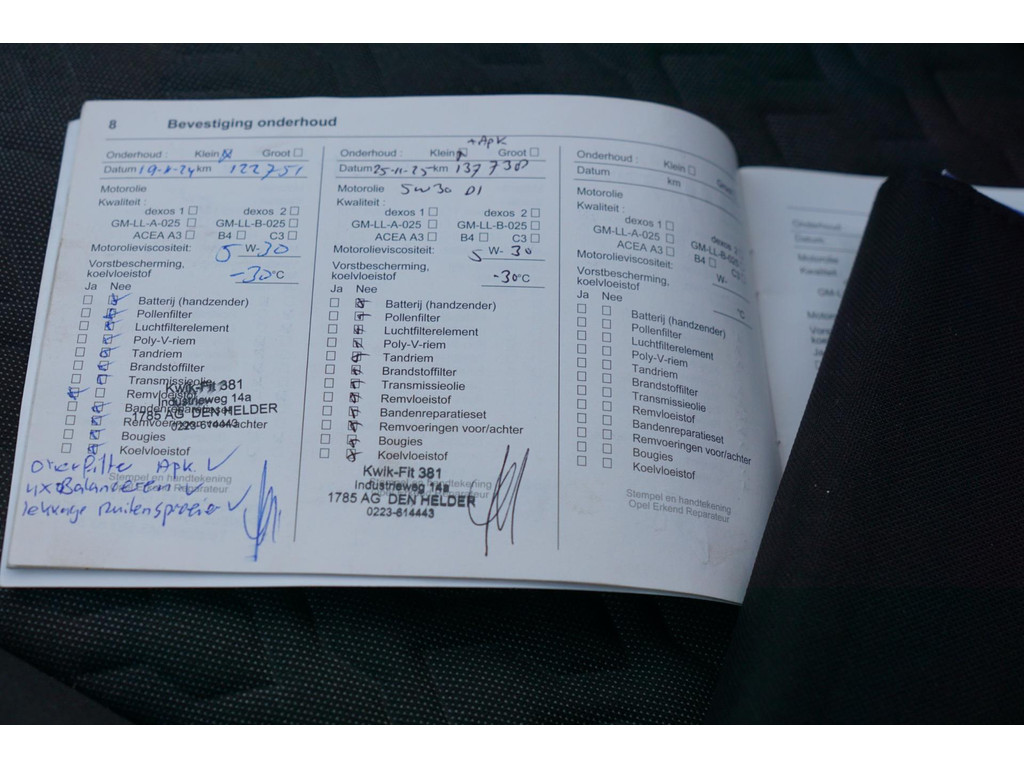 8 Bevestiging onderhoud
Onderhoud : Klein Groot
Datum 19-1-24 km 122751
Motorolie
Kwaliteit :
dexos 1 dexos 2
GM-LL-A-025 GM-LL-B-025
ACEA A3 B4 C3
Motorolieviscositeit: 5 W-30
Vorstbescherming,
koelvloeistof -30°C
Ja Nee
Batterij (handzender)
Pollenfilter
Luchtfilterelement
Poly-V-riem
Tandriem
Brandstoffilter
Transmissieolie
Remvloeistof
Bandenreparatieset
Remvoeringen voor/achter
Bougies
Koelvloeistof
Kwik-Fit 381
Industrieweg 14a
1785 AG DEN HELDER
0223-614443
Oliefilter Apk
4x Balanceren
lekkage ruitensproeier
Stempel en handtekening
Opel Erkend Reparateur
+ Apk
Onderhoud : Klein Groot
Datum 25-11-25 km 137730
Motorolie 5W30 D1
Kwaliteit :
dexos 1 dexos 2
GM-LL-A-025 GM-LL-B-025
ACEA A3 B4 C3
Motorolieviscositeit: 5 W-30
Vorstbescherming,
koelvloeistof -30°C
Ja Nee
Batterij (handzender)
Pollenfilter
Luchtfilterelement
Poly-V-riem
Tandriem
Brandstoffilter
Transmissieolie
Remvloeistof
Bandenreparatieset
Remvoeringen voor/achter
Bougies
Koelvloeistof
Kwik-Fit 381
Industrieweg 14a
1785 AG DEN HELDER
0223-614443
Stempel en handtekening
Opel Erkend Reparateur
Onderhoud : Klein Groot
Datum km
Motorolie
Kwaliteit :
dexos 1 dexos 2
GM-LL-A-025 GM-LL-B-025
ACEA A3 B4 C3
Motorolieviscositeit: W-
Vorstbescherming,
koelvloeistof °C
Ja Nee
Batterij (handzender)
Pollenfilter
Luchtfilterelement
Poly-V-riem
Tandriem
Brandstoffilter
Transmissieolie
Remvloeistof
Bandenreparatieset
Remvoeringen voor/achter
Bougies
Koelvloeistof
Stempel en handtekening
Opel Erkend Reparateur
Onderhoud
Datum
Motorolie
Kwaliteit